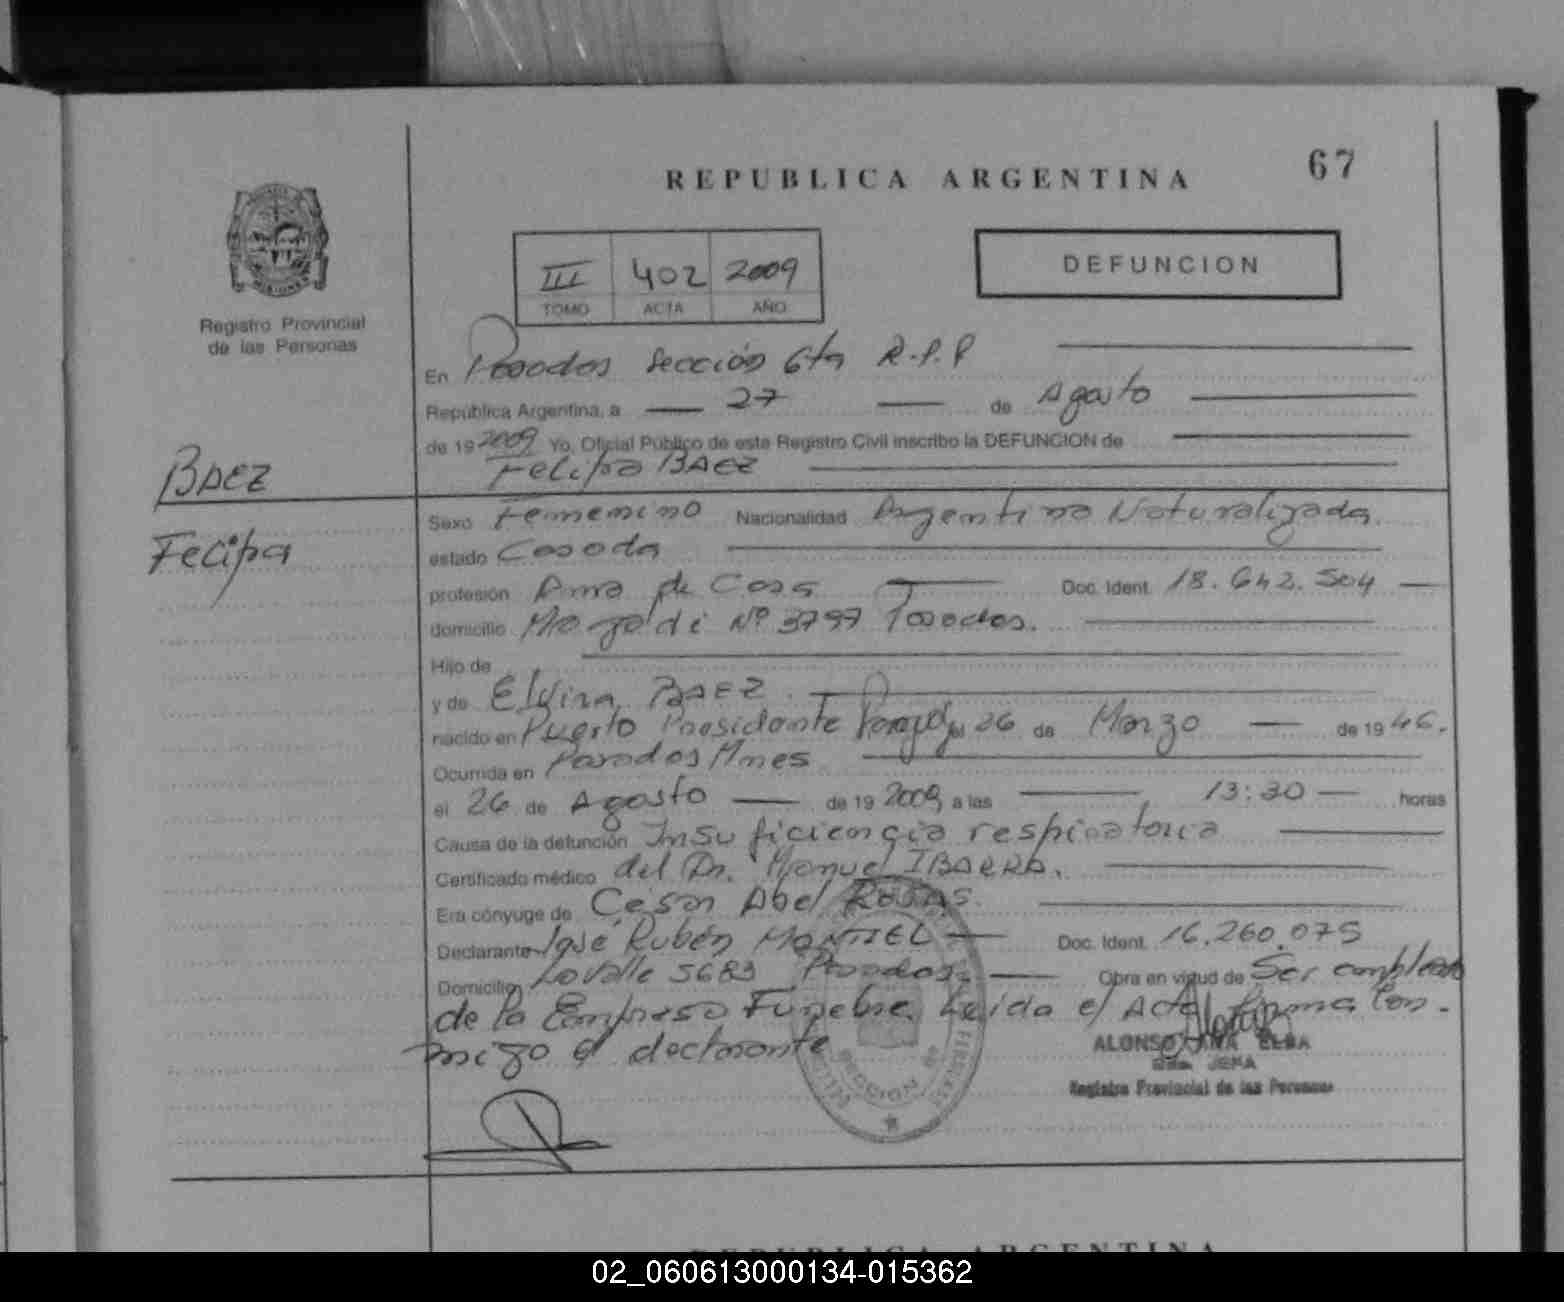 REPUBLICA ARGENTINA
67
Registro Provincial
de las Personas
III 402 2009
TOMO ACTA AÑO
DEFUNCION
En Posadas Sección 6ta R.P.P
República Argentina, a 27 de Agosto
de 19 2009 Yo, Oficial Público de este Registro Civil inscribo la DEFUNCION de
Felipa BAEZ
BAEZ
Felipa
Sexo Femenino Nacionalidad Argentina Naturalizada
estado Casada
profesión Ama de Casa Doc. Ident. 18.642.504
domicilio Magaldi Nº 3797 Posadas.
Hijo de
y de Elvira BAEZ.
nacido en Puerto Presidente el 26 de Marzo de 19 46.
Ocurrida en Posadas Mnes
el 26 de Agosto de 19 2009 a las 13:30 horas
Causa de la defunción Insuficiencia respiratoria
Certificado médico del Dr. Manuel IBARRA.
Era cónyuge de César Abel ROJAS.
Declarante José Rubén MONTIEL Doc. Ident. 16.260.075
Domicilio Lavalle 5683 Posadas. Obra en virtud de Ser empleado
de la Empresa Funebre. Leida el Acta firma Con-
migo el declarante
SECCION 6ª
ALONSO ANA ELBA
JEFA
Registro Provincial de las Personas
REPUBLICA ARGENTINA
02_060613000134-015362